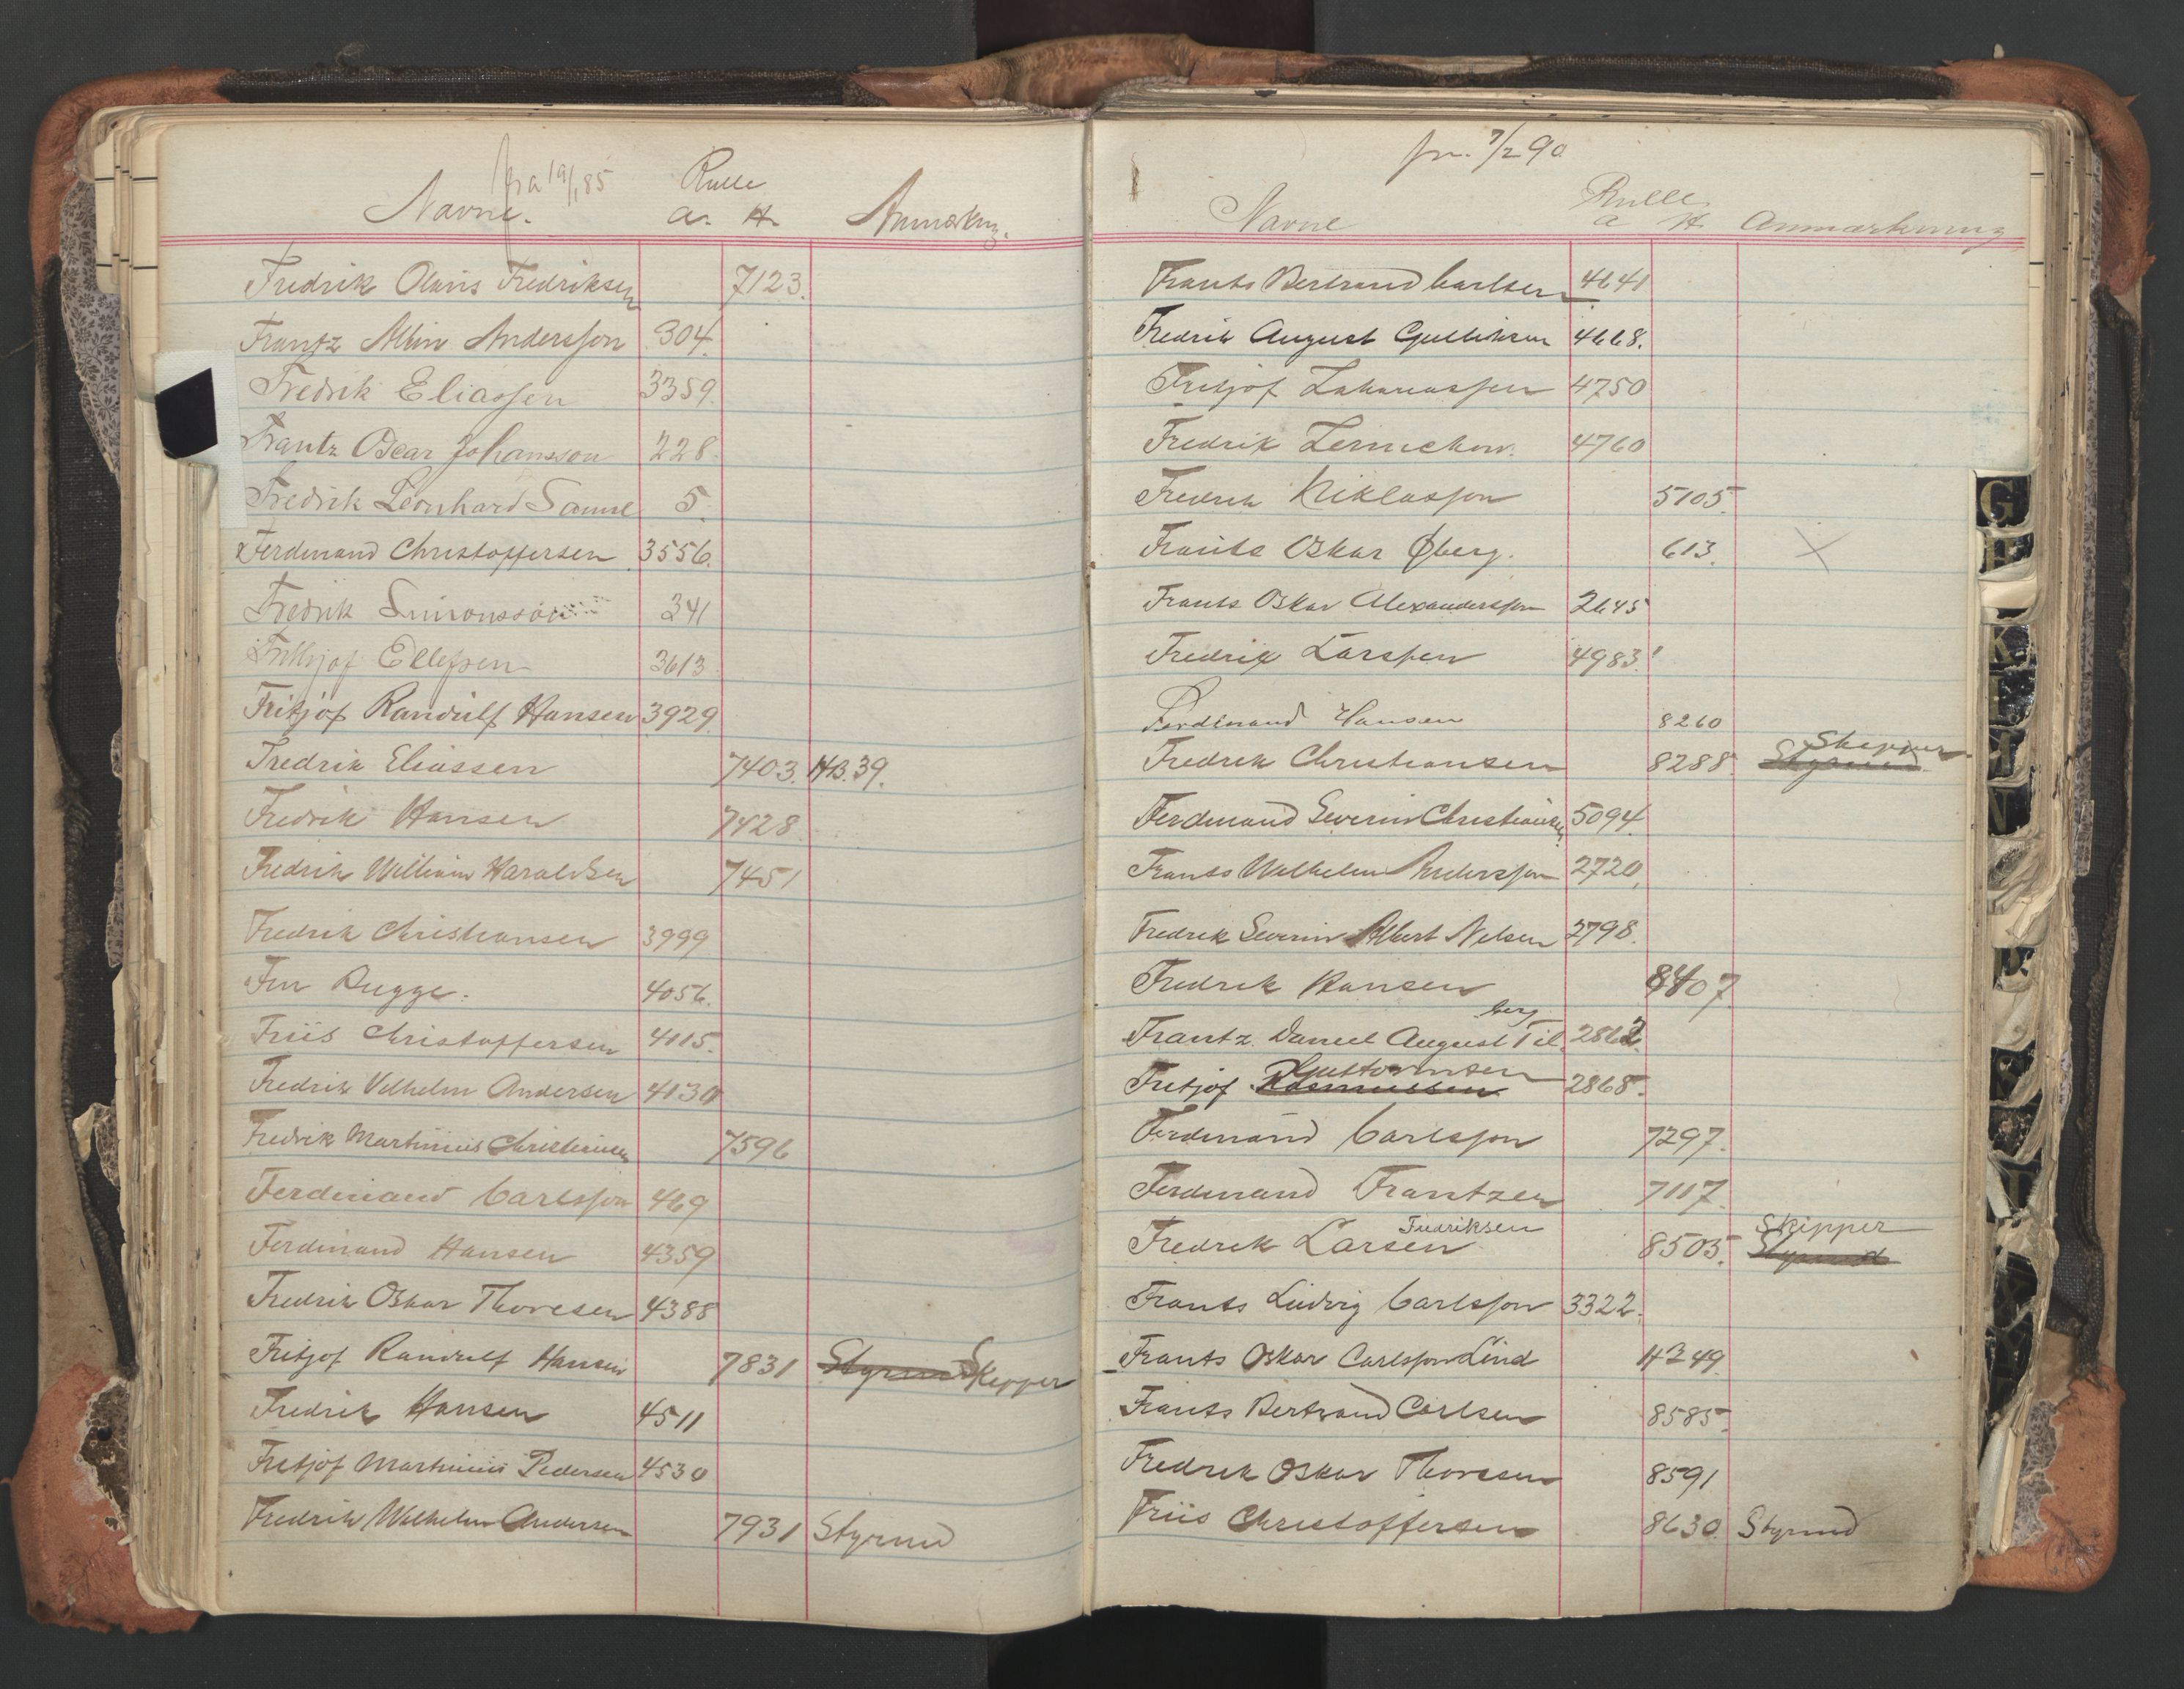 fra 19/1 85
Rulle
Navne. a. H. Anmærkng.
Fredrik Olavis Fredriksen 7123.
Frantz Albin Andersson 304.
Fredrik Eliassen 3359.
Frantz Oscar Johansson 228.
Fredrik Leonhard Samuel 5.
Ferdinand Christoffersen 3556.
Fredrik Simonsson 341
Frithjof Ellefsen 3613.
Fritjof Randulf Hansen 3929.
Fredrik Eliassen 7403. HB. 39.
Fredrik Hansen 7428
Fredrik William Haraldsen 7451
Fredrik Christiansen 3999
Finn Bugge. 4056.
Friis Christoffersen 4115.
Fredrik Vilhelm Andersen 4130
Fredrik Martinius Christiansen 7596
Ferdinand Carlsson 469
Ferdinand Hansen 4359
Fredrik Oskar Thoresen 4388
Fritjof Randulf Hansen 7831 Styrmd Skipper
Fredrik Hansen 4511
Fritjof Martinius Pedersen 4530
Fredrik Wilhelm Andersen 7931 Styrmd
fra 7/2 90
Rulle
Navne a H Anmærkning
Frants Bertrand Carlsen 4641
Fredrik August Gulliksen 4668.
Fritjof Zakariassen 4750
Fredrik 4760
Fredrik Niklasson 5105.
Frants Oskar Øberg. 613. X
Frants Oskar Alexandersson 2645
Fredrik Larssen 4983.
Ferdinand Hansen 8260
Fredrik Christiansen 8288. Styrmd Skipper
Ferdinand Severin Christiansen 5094.
Frants Wilhelm Andersson 2720.
Fredrik Severin Albert Nelsen 2798.
Fredrik Hansen 8407
Frantz Daniel August Tilberg 2862.
Fritjof Rasmussen Guttormsen 2868.
Ferdinand Carlsson 7297.
Ferdinand Frantzen 7117.
Fredrik Larsen Fredriksen 8505. Styrmd Skipper
Frants Ludvig Carlsson 3322.
Frants Oskar Carlsson Lind 4249.
Frants Bertrand Carlsen 8585.
Fredrik Oskar Thoresen 8591
Friis Christoffersen 8630. Styrmd
G
K
N